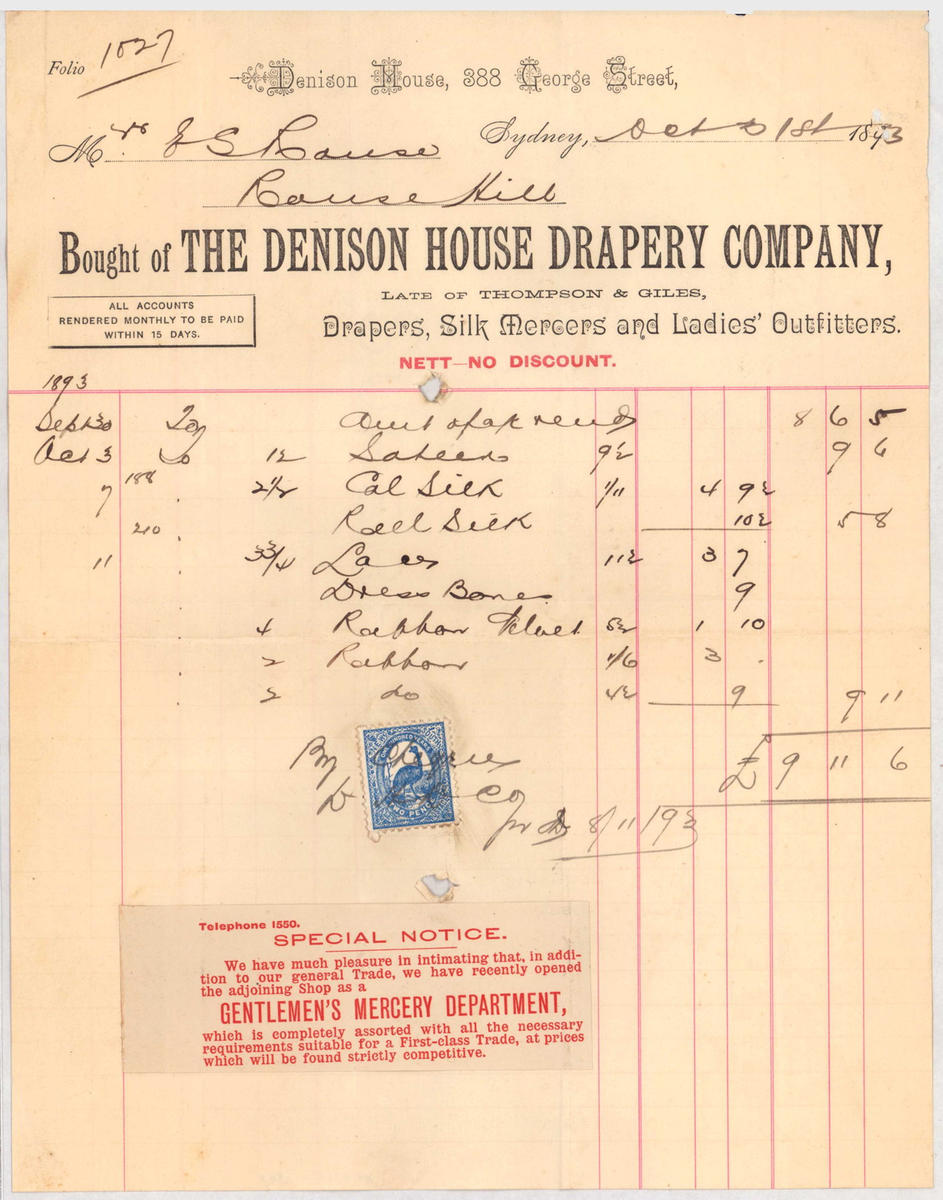 Folio 1027
Denison House, 388 George Street,
Mrs E S Rouse Sydney, Oct 31st 1893
Rouse Hill
Bought of THE DENISON HOUSE DRAPERY COMPANY,
LATE OF THOMPSON & GILES,
ALL ACCOUNTS
RENDERED MONTHLY TO BE PAID
WITHIN 15 DAYS.
Drapers, Silk Mercers and Ladies' Outfitters.
NETT—NO DISCOUNT.
1893
Sept 30 To Amt of a/c rend 8 6 5
Oct 3 To 12 Sateen 9½ 9 6
7 188 2½ Col Silk 1/11 4 9½
210 Reel Silk 10½ 5 8
11 3¾ Lace 11½ 3 7
Dress Bones 9
4 Ribbon Velvet 5½ 1 10
2 Ribbon 1/6 3 .
2 do 4½ 9 9 11
By Cheque £ 9 11 6
Co
8/11/93
ONE HUNDRED YEARS
TWO PENCE
Telephone 1550.
SPECIAL NOTICE.
We have much pleasure in intimating that, in addi-
tion to our general Trade, we have recently opened
the adjoining Shop as a
GENTLEMEN'S MERCERY DEPARTMENT,
which is completely assorted with all the necessary
requirements suitable for a First-class Trade, at prices
which will be found strictly competitive.